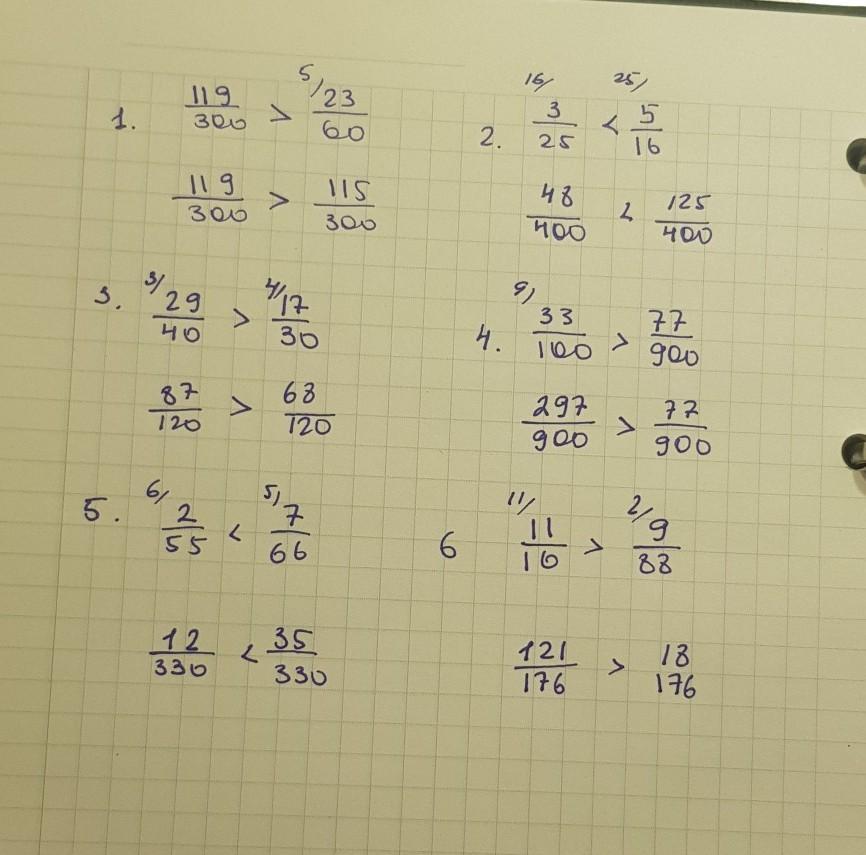 1. 119/300 > 5/ 23/60
119/300 > 115/300
2. 16/ 3/25 < 25/ 5/16
48/400 < 125/400
3. 3/ 29/40 > 4/ 17/30
87/120 > 68/120
4. 9/ 33/100 > 77/900
297/900 > 77/900
5. 6/ 2/55 < 5/ 7/66
12/330 < 35/330
6 11/ 11/16 > 2/ 9/88
121/176 > 18/176